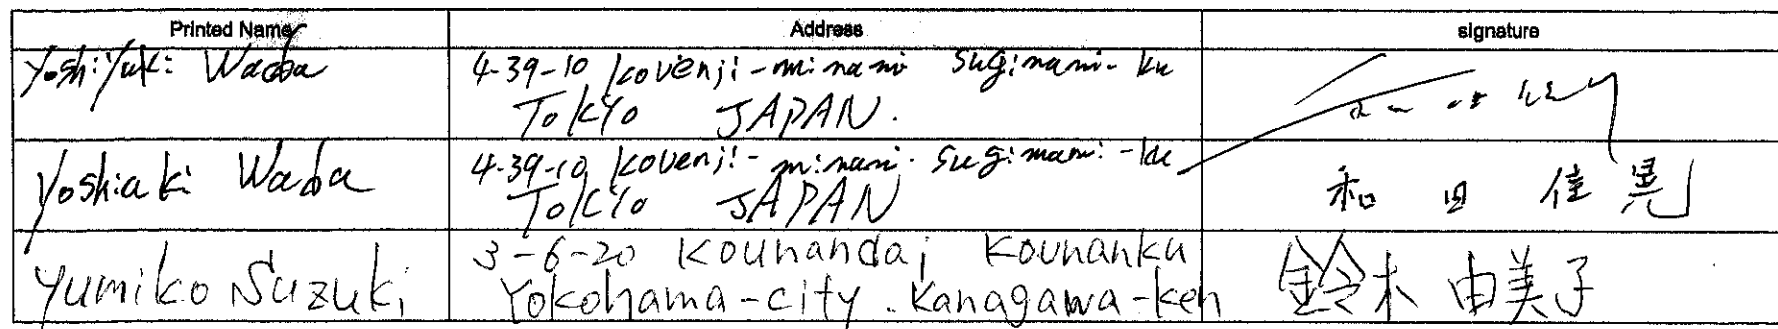 Printed Name Address signature
Yoshiyuki Wada 4-39-10 Kouenji-minami Suginami-ku
TOKYO JAPAN.
Yoshiaki Wada 4-39-10 Kouenji-minami-Suginami-ku
TOKYO JAPAN
和田 佳晃
Yumiko Suzuki 3-6-20 Kounandai Kounanku
Yokohama-city. Kanagawa-ken
鈴木 由美子